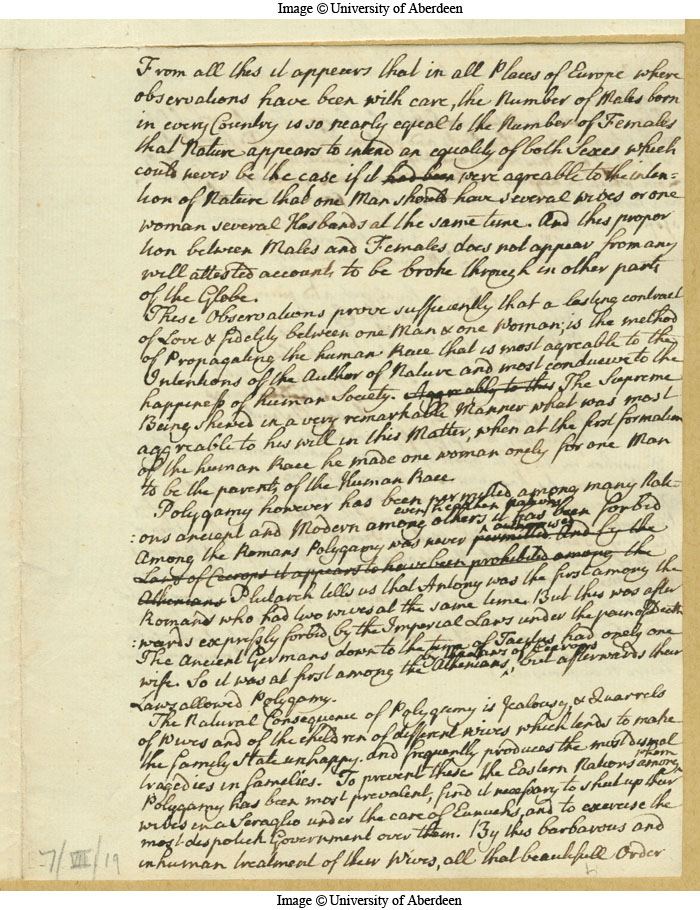 Image © University of Aberdeen
From all this it appears that in all Places of Europe where
observations have been with care, the Number of Males born
in every Country is so nearly equal to the Number of Females
that Nature appears to intend an equality of both Sexes which
could never be the case if it had been were agreable to the inten=
tion of Nature that one Man should have several wives or one
woman several Husbands at the same time. And this propor
tion between Males and Females does not appear from any
well attested accounts to be broke through in other parts
of the Globe.
These Observations prove sufficiently that a lasting contract
of Love & fidelity between one Man & one Woman, is the method
of Propagating the human Race that is most agreable to the
Intentions of the Author of Nature and most conducive to the
happiness of human Society. Aggreably to this The Supreme
Being shewed in a very remarkable Manner what was most
aggreable to his will in this Matter, when at the first formation
of the human Race he made one woman onely for one Man
to be the parents of the Human Race.
Polygamy however has been permitted among many Nati-
:ons ancient and Modern among others it has been forbid
even heathen nations
Among the Romans Polygamy was never permitted And by the
authorised
Laws of Cecrops it appears to have been prohibited among the
Athenians Plutarch tells us that Antony was the first among the
Romans who had two wives at the same time. But this was after
:wards expressly forbid by the Imperial Laws under the pain of Death
The Ancient Germans down to the time of Tacitus had onely one
wife. So it was at first among the Athenians, but afterwards their
by the Laws of Cecrops
Laws allowed Polygamy.
The Natural Consequence of Polygamy is Jealousy, & Quarrels
of Wives and of the children of different wives which tends to make
the family State unhappy. and frequently produces the most dismal
tragedies in families. To prevent these the Eastern Nations among
whom
Polygamy has been most prevalent, find it necessary to shut up their
wives in a Seraglio under the care of Eunuchs, and to exercise the
most despotick Government over them. By this barbarous and
inhuman treatment of their Wives, all that beautifull Order
7/VII/19
Image © University of Aberdeen